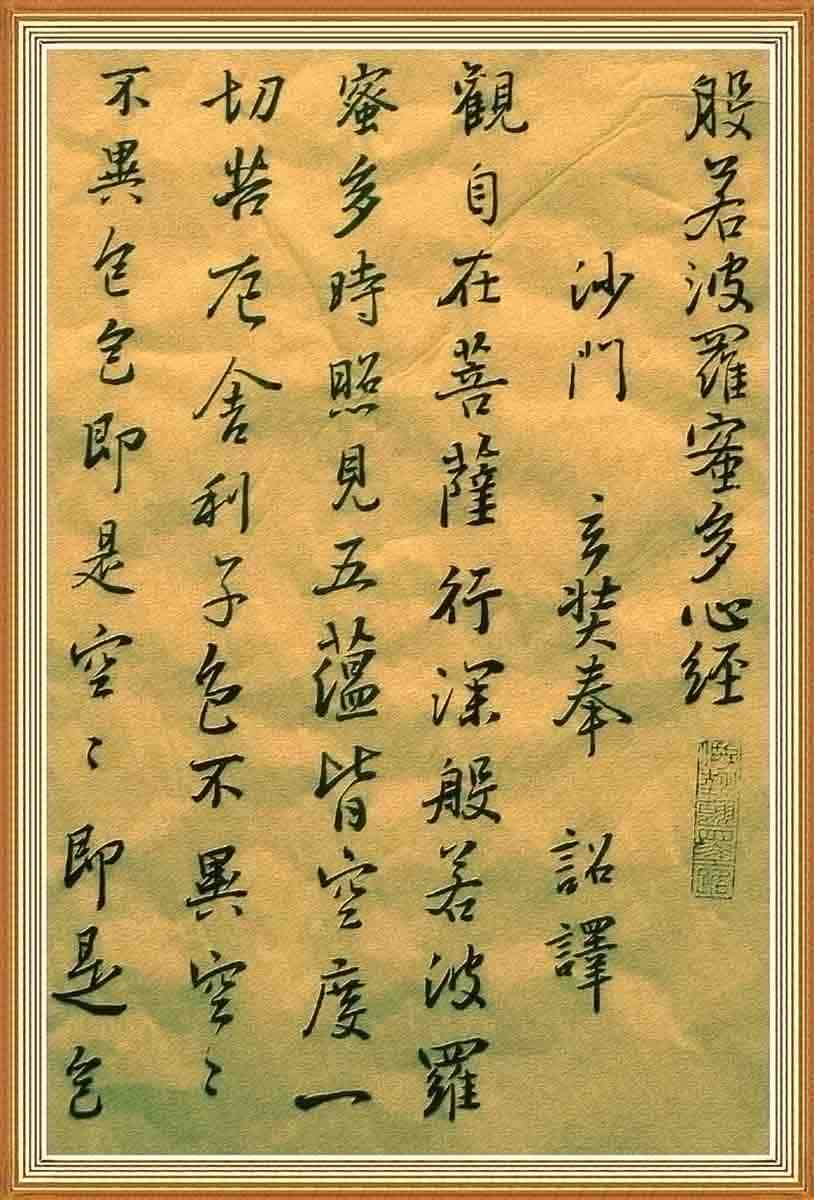 般若波羅蜜多心經
沙門 玄奘奉 詔譯
觀自在菩薩行深般若波羅
蜜多時照見五蘊皆空度一
切苦厄舍利子色不異空〻
不異色色即是空〻即是色